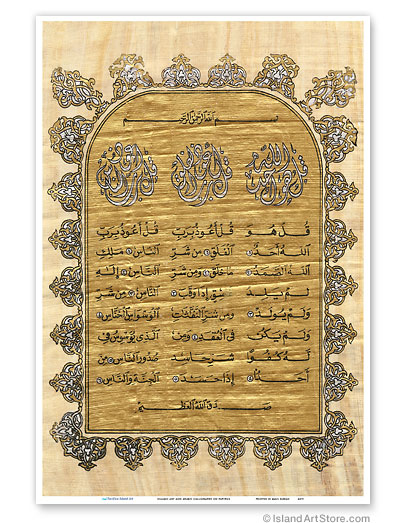 بسم الله الرحمن الرحيم
قل هو الله أحد
قل أعوذ برب الفلق
قل أعوذ برب الناس
قُلْ هُوَ
اللَّهُ أَحَدٌ ١
اللَّهُ الصَّمَدُ ٢
لَمْ يَلِدْ
وَلَمْ يُولَدْ ٣
وَلَمْ يَكُنْ
لَهُ كُفُوًا
أَحَدٌ ٤
قُلْ أَعُوذُ بِرَبِّ
الْفَلَقِ ١ مِنْ شَرِّ
مَا خَلَقَ ٢ وَمِنْ شَرِّ
غَاسِقٍ إِذَا وَقَبَ ٣
وَمِنْ شَرِّ النَّفَّاثَاتِ
فِي الْعُقَدِ ٤ وَمِنْ
شَرِّ حَاسِدٍ
إِذَا حَسَدَ ٥
قُلْ أَعُوذُ بِرَبِّ
النَّاسِ ١ مَلِكِ
النَّاسِ ٢ إِلَهِ
النَّاسِ ٣ مِنْ شَرِّ
الْوَسْوَاسِ الْخَنَّاسِ ٤
الَّذِي يُوَسْوِسُ فِي
صُدُورِ النَّاسِ ٥ مِنَ
الْجِنَّةِ وَالنَّاسِ ٦
صدق الله العظيم
© IslandArtStore.com